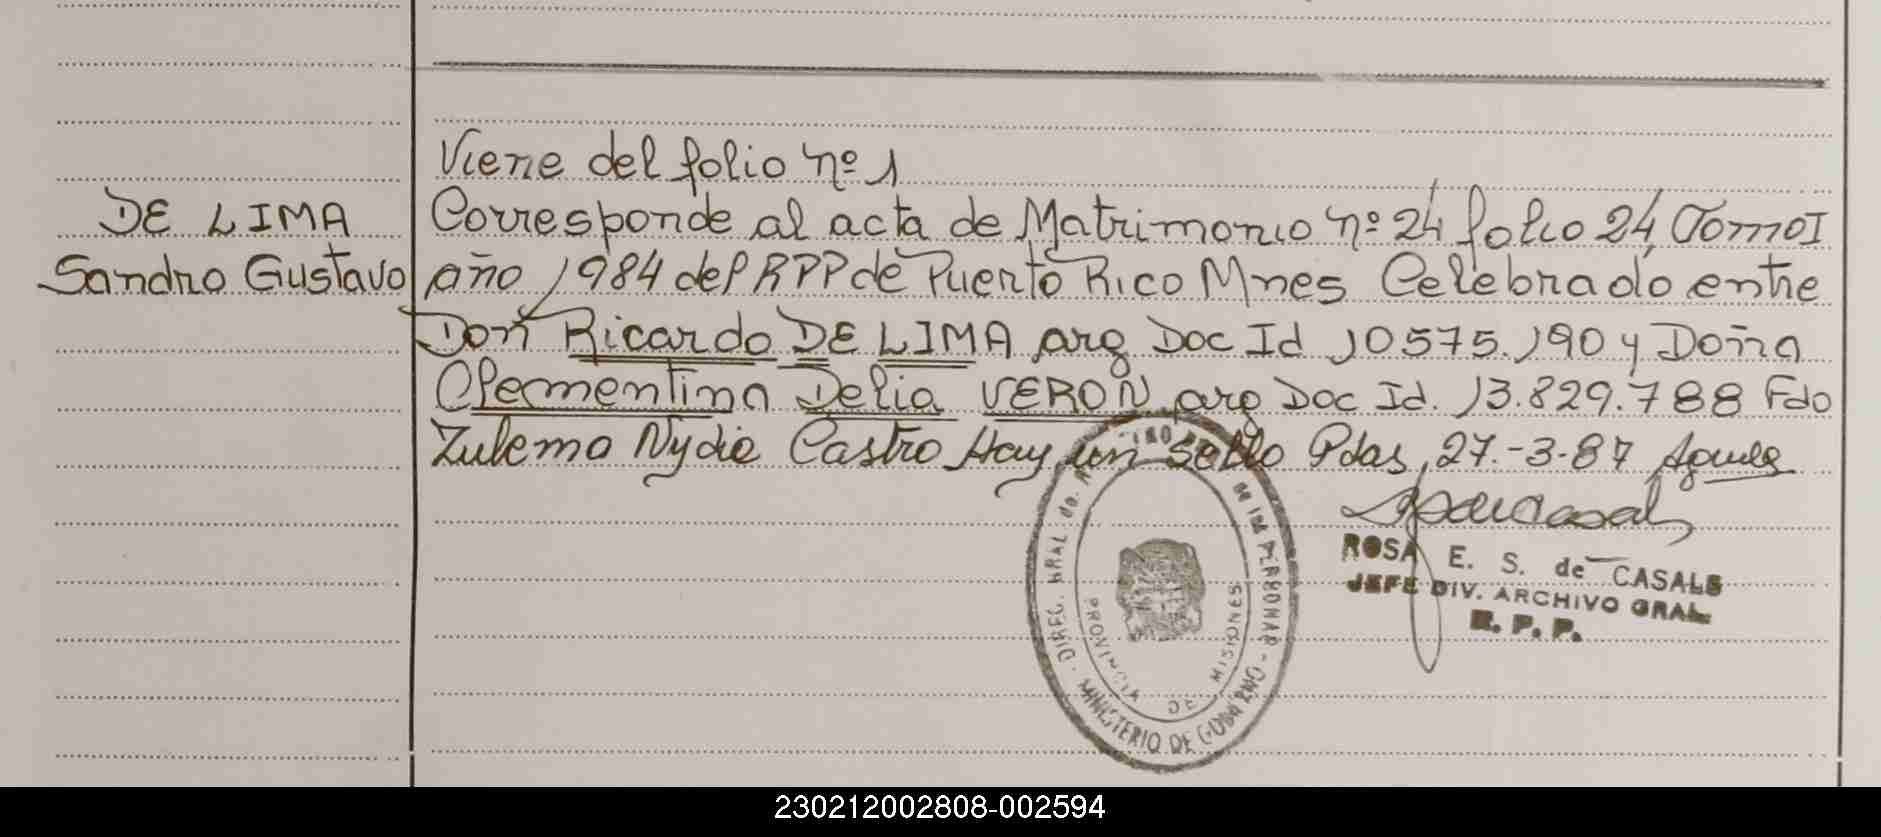 Viene del folio nº 1
DE LIMA
Sandro Gustavo
Corresponde al acta de Matrimonio nº 24 folio 24 Tomo I
año 1984 del RPP de Puerto Rico Mnes Celebrado entre
Don Ricardo DE LIMA arg Doc Id 10575.190 y Doña
Clementina Delia VERON arg Doc Id. 13.829.788 Fdo
Zulema Nydia Castro Hay un Sello Pdas, 27.-3-87
ROSA E. S. de CASALS
JEFE DIV. ARCHIVO GRAL.
R. P. P.
DIREC. GRAL. de
de las PERSONAS - MINISTERIO DE GOBIERNO
PROVINCIA DE MISIONES
230212002808-002594